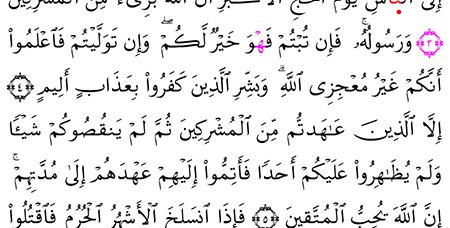 إِلَى ٱلنَّاسِ يَوْمَ ٱلْحَجِّ ٱلْأَكْبَرِ أَنَّ ٱللَّهَ بَرِىٓءٌ مِّنَ ٱلْمُشْرِكِينَ
﴿٣﴾ وَرَسُولُهُۥ ۚ فَإِن تُبْتُمْ فَهُوَ خَيْرٌ لَّكُمْ ۖ وَإِن تَوَلَّيْتُمْ فَٱعْلَمُوٓا۟
أَنَّكُمْ غَيْرُ مُعْجِزِى ٱللَّهِ ۗ وَبَشِّرِ ٱلَّذِينَ كَفَرُوا۟ بِعَذَابٍ أَلِيمٍ ﴿٤﴾
إِلَّا ٱلَّذِينَ عَـٰهَدتُّم مِّنَ ٱلْمُشْرِكِينَ ثُمَّ لَمْ يَنقُصُوكُمْ شَيْـًٔا
وَلَمْ يُظَـٰهِرُوا۟ عَلَيْكُمْ أَحَدًا فَأَتِمُّوٓا۟ إِلَيْهِمْ عَهْدَهُمْ إِلَىٰ مُدَّتِهِمْ ۚ
إِنَّ ٱللَّهَ يُحِبُّ ٱلْمُتَّقِينَ ﴿٥﴾ فَإِذَا ٱنسَلَخَ ٱلْأَشْهُرُ ٱلْحُرُمُ فَٱقْتُلُوا۟